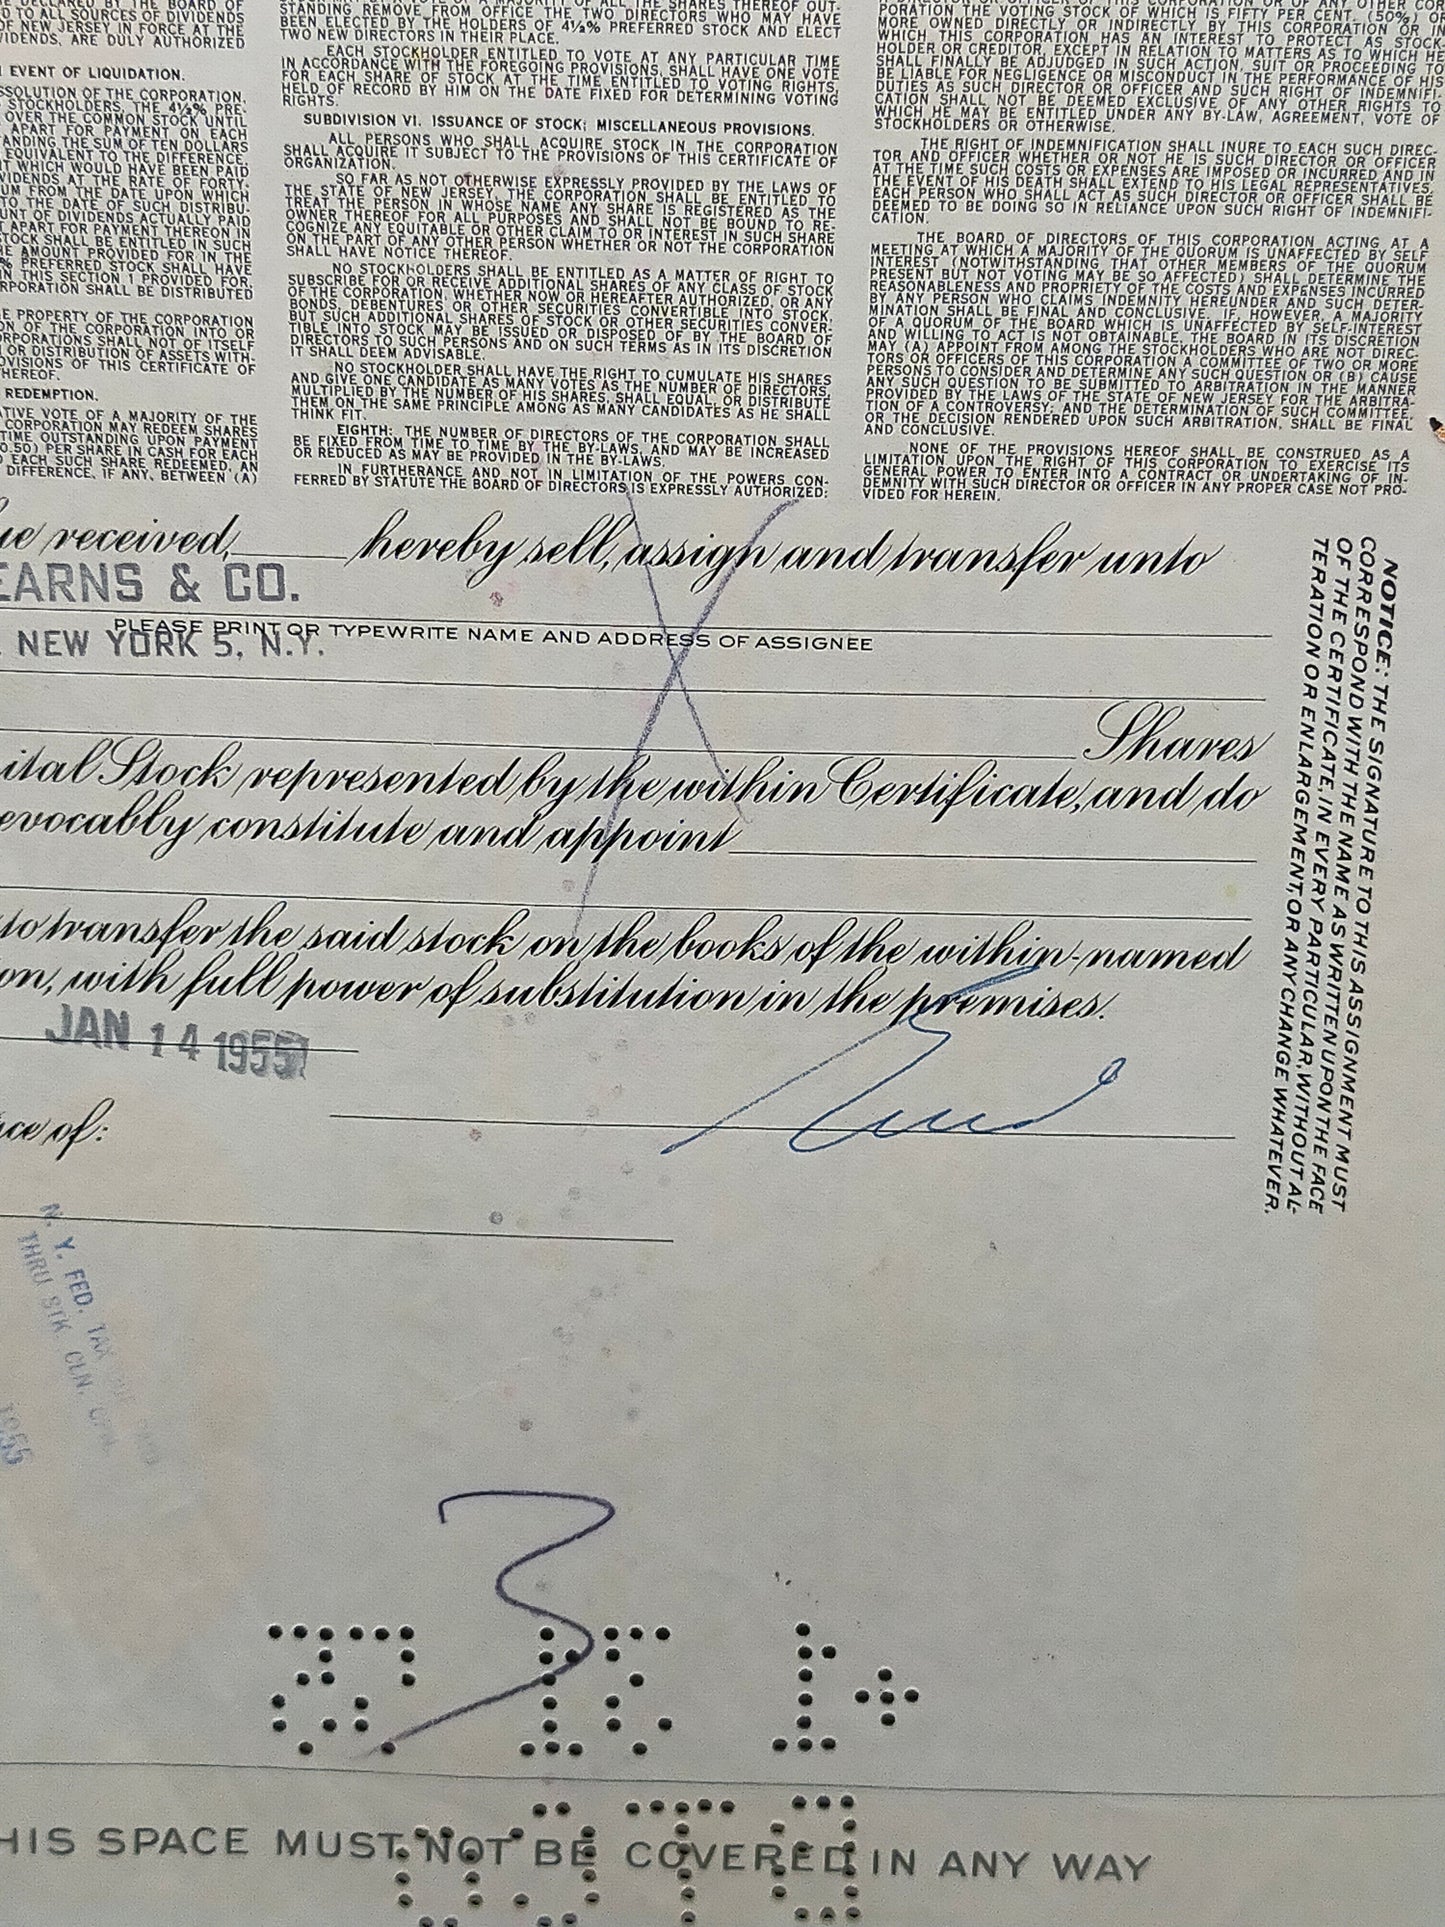 DECLARED BY THE BOARD OF
TO ALL SOURCES OF DIVIDENDS
OF NEW JERSEY IN FORCE AT THE
DIVIDENDS, ARE DULY AUTHORIZED
EVENT OF LIQUIDATION.
SSOLUTION OF THE CORPORATION,
STOCKHOLDERS, THE 4½% PRE-
OVER THE COMMON STOCK UNTIL
APART FOR PAYMENT ON EACH
ANDING THE SUM OF TEN DOLLARS
EQUIVALENT TO THE DIFFERENCE,
T WHICH WOULD HAVE BEEN PAID
VIDENDS AT THE RATE OF FORTY-
UM FROM THE DATE UPON WHICH
TO THE DATE OF SUCH DISTRIBU-
UNT OF DIVIDENDS ACTUALLY PAID
T APART FOR PAYMENT THEREON IN
STOCK SHALL BE ENTITLED IN SUCH
E AMOUNT PROVIDED FOR IN THE
% PREFERRED STOCK SHALL HAVE
IN THIS SECTION 1 PROVIDED FOR,
RPORATION SHALL BE DISTRIBUTED
E PROPERTY OF THE CORPORATION
ON OF THE CORPORATION INTO OR
ORPORATIONS SHALL NOT OF ITSELF
OR DISTRIBUTION OF ASSETS WITH-
OVISIONS OF THIS CERTIFICATE OF
HEREOF.
REDEMPTION.
ATIVE VOTE OF A MAJORITY OF THE
CORPORATION MAY REDEEM SHARES
TIME OUTSTANDING UPON PAYMENT
0.50) PER SHARE IN CASH FOR EACH
D EACH SUCH SHARE REDEEMED, AN
DIFFERENCE, IF ANY, BETWEEN (A)
VOTE OF A MAJORITY OF ALL THE SHARES THEREOF OUT-
STANDING REMOVE FROM OFFICE THE TWO DIRECTORS WHO MAY HAVE
BEEN ELECTED BY THE HOLDERS OF 4½% PREFERRED STOCK AND ELECT
TWO NEW DIRECTORS IN THEIR PLACE.
EACH STOCKHOLDER ENTITLED TO VOTE AT ANY PARTICULAR TIME
IN ACCORDANCE WITH THE FOREGOING PROVISIONS, SHALL HAVE ONE VOTE
FOR EACH SHARE OF STOCK AT THE TIME ENTITLED TO VOTING RIGHTS,
HELD OF RECORD BY HIM ON THE DATE FIXED FOR DETERMINING VOTING
RIGHTS.
SUBDIVISION VI. ISSUANCE OF STOCK; MISCELLANEOUS PROVISIONS.
ALL PERSONS WHO SHALL ACQUIRE STOCK IN THE CORPORATION
SHALL ACQUIRE IT SUBJECT TO THE PROVISIONS OF THIS CERTIFICATE OF
ORGANIZATION.
SO FAR AS NOT OTHERWISE EXPRESSLY PROVIDED BY THE LAWS OF
THE STATE OF NEW JERSEY, THE CORPORATION SHALL BE ENTITLED TO
TREAT THE PERSON IN WHOSE NAME ANY SHARE IS REGISTERED AS THE
OWNER THEREOF FOR ALL PURPOSES AND SHALL NOT BE BOUND TO RE-
COGNIZE ANY EQUITABLE OR OTHER CLAIM TO OR INTEREST IN SUCH SHARE
ON THE PART OF ANY OTHER PERSON WHETHER OR NOT THE CORPORATION
SHALL HAVE NOTICE THEREOF.
NO STOCKHOLDERS SHALL BE ENTITLED AS A MATTER OF RIGHT TO
SUBSCRIBE FOR OR RECEIVE ADDITIONAL SHARES OF ANY CLASS OF STOCK
OF THE CORPORATION, WHETHER NOW OR HEREAFTER AUTHORIZED, OR ANY
BONDS, DEBENTURES OR OTHER SECURITIES CONVERTIBLE INTO STOCK,
BUT SUCH ADDITIONAL SHARES OF STOCK OR OTHER SECURITIES CONVER-
TIBLE INTO STOCK MAY BE ISSUED OR DISPOSED OF BY THE BOARD OF
DIRECTORS TO SUCH PERSONS AND ON SUCH TERMS AS IN ITS DISCRETION
IT SHALL DEEM ADVISABLE.
NO STOCKHOLDER SHALL HAVE THE RIGHT TO CUMULATE HIS SHARES
AND GIVE ONE CANDIDATE AS MANY VOTES AS THE NUMBER OF DIRECTORS,
MULTIPLIED BY THE NUMBER OF HIS SHARES, SHALL EQUAL, OR DISTRIBUTE
THEM ON THE SAME PRINCIPLE AMONG AS MANY CANDIDATES AS HE SHALL
THINK FIT.
EIGHTH: THE NUMBER OF DIRECTORS OF THE CORPORATION SHALL
BE FIXED FROM TIME TO TIME BY THE BY-LAWS, AND MAY BE INCREASED
OR REDUCED AS MAY BE PROVIDED IN THE BY-LAWS.
IN FURTHERANCE AND NOT IN LIMITATION OF THE POWERS CON-
FERRED BY STATUTE THE BOARD OF DIRECTORS IS EXPRESSLY AUTHORIZED:
DIRECTOR OR OFFICER OF THIS CORPORATION OR OF ANY OTHER COR-
PORATION THE VOTING STOCK OF WHICH IS FIFTY PER CENT. (50%) OR
MORE OWNED DIRECTLY OR INDIRECTLY BY THIS CORPORATION OR IN
WHICH THIS CORPORATION HAS AN INTEREST TO PROTECT AS STOCK-
HOLDER OR CREDITOR, EXCEPT IN RELATION TO MATTERS AS TO WHICH HE
SHALL FINALLY BE ADJUDGED IN SUCH ACTION, SUIT OR PROCEEDING TO
BE LIABLE FOR NEGLIGENCE OR MISCONDUCT IN THE PERFORMANCE OF HIS
DUTIES AS SUCH DIRECTOR OR OFFICER AND SUCH RIGHT OF INDEMNIFI-
CATION SHALL NOT BE DEEMED EXCLUSIVE OF ANY OTHER RIGHTS TO
WHICH HE MAY BE ENTITLED UNDER ANY BY-LAW, AGREEMENT, VOTE OF
STOCKHOLDERS OR OTHERWISE.
THE RIGHT OF INDEMNIFICATION SHALL INURE TO EACH SUCH DIREC-
TOR AND OFFICER WHETHER OR NOT HE IS SUCH DIRECTOR OR OFFICER
AT THE TIME SUCH COSTS OR EXPENSES ARE IMPOSED OR INCURRED AND IN
THE EVENT OF HIS DEATH SHALL EXTEND TO HIS LEGAL REPRESENTATIVES.
EACH PERSON WHO SHALL ACT AS SUCH DIRECTOR OR OFFICER SHALL BE
DEEMED TO BE DOING SO IN RELIANCE UPON SUCH RIGHT OF INDEMNIFI-
CATION.
THE BOARD OF DIRECTORS OF THIS CORPORATION ACTING AT A
MEETING AT WHICH A MAJORITY OF THE QUORUM IS UNAFFECTED BY SELF
INTEREST (NOTWITHSTANDING THAT OTHER MEMBERS OF THE QUORUM
PRESENT BUT NOT VOTING MAY BE SO AFFECTED) SHALL DETERMINE THE
REASONABLENESS AND PROPRIETY OF THE COSTS AND EXPENSES INCURRED
BY ANY PERSON WHO CLAIMS INDEMNITY HEREUNDER AND SUCH DETER-
MINATION SHALL BE FINAL AND CONCLUSIVE. IF, HOWEVER, A MAJORITY
OF A QUORUM OF THE BOARD WHICH IS UNAFFECTED BY SELF-INTEREST
AND WILLING TO ACT IS NOT OBTAINABLE, THE BOARD IN ITS DISCRETION
MAY (A) APPOINT FROM AMONG THE STOCKHOLDERS WHO ARE NOT DIREC-
TORS OR OFFICERS OF THIS CORPORATION A COMMITTEE OF TWO OR MORE
PERSONS TO CONSIDER AND DETERMINE ANY SUCH QUESTION OR (B) CAUSE
ANY SUCH QUESTION TO BE SUBMITTED TO ARBITRATION IN THE MANNER
PROVIDED BY THE LAWS OF THE STATE OF NEW JERSEY FOR THE ARBITRA-
TION OF A CONTROVERSY; AND THE DETERMINATION OF SUCH COMMITTEE,
OR THE DECISION RENDERED UPON SUCH ARBITRATION, SHALL BE FINAL
AND CONCLUSIVE.
NONE OF THE PROVISIONS HEREOF SHALL BE CONSTRUED AS A
LIMITATION UPON THE RIGHT OF THIS CORPORATION TO EXERCISE ITS
GENERAL POWER TO ENTER INTO A CONTRACT OR UNDERTAKING OF IN-
DEMNITY WITH SUCH DIRECTOR OR OFFICER IN ANY PROPER CASE NOT PRO-
VIDED FOR HEREIN.
ue received, hereby sell, assign and transfer unto
EARNS & CO.
PLEASE PRINT OR TYPEWRITE NAME AND ADDRESS OF ASSIGNEE
NEW YORK 5, N.Y.
Shares
ital Stock represented by the within Certificate, and do
evocably constitute and appoint
to transfer the said stock on the books of the within-named
on, with full power of substitution in the premises.
JAN 14 1955
ce of:
NOTICE: THE SIGNATURE TO THIS ASSIGNMENT MUST
CORRESPOND WITH THE NAME AS WRITTEN UPON THE FACE
OF THE CERTIFICATE, IN EVERY PARTICULAR, WITHOUT AL-
TERATION OR ENLARGEMENT, OR ANY CHANGE WHATEVER.
N. Y. FED. TAX
THRU STK. CLN.
1955
THIS SPACE MUST NOT BE COVERED IN ANY WAY